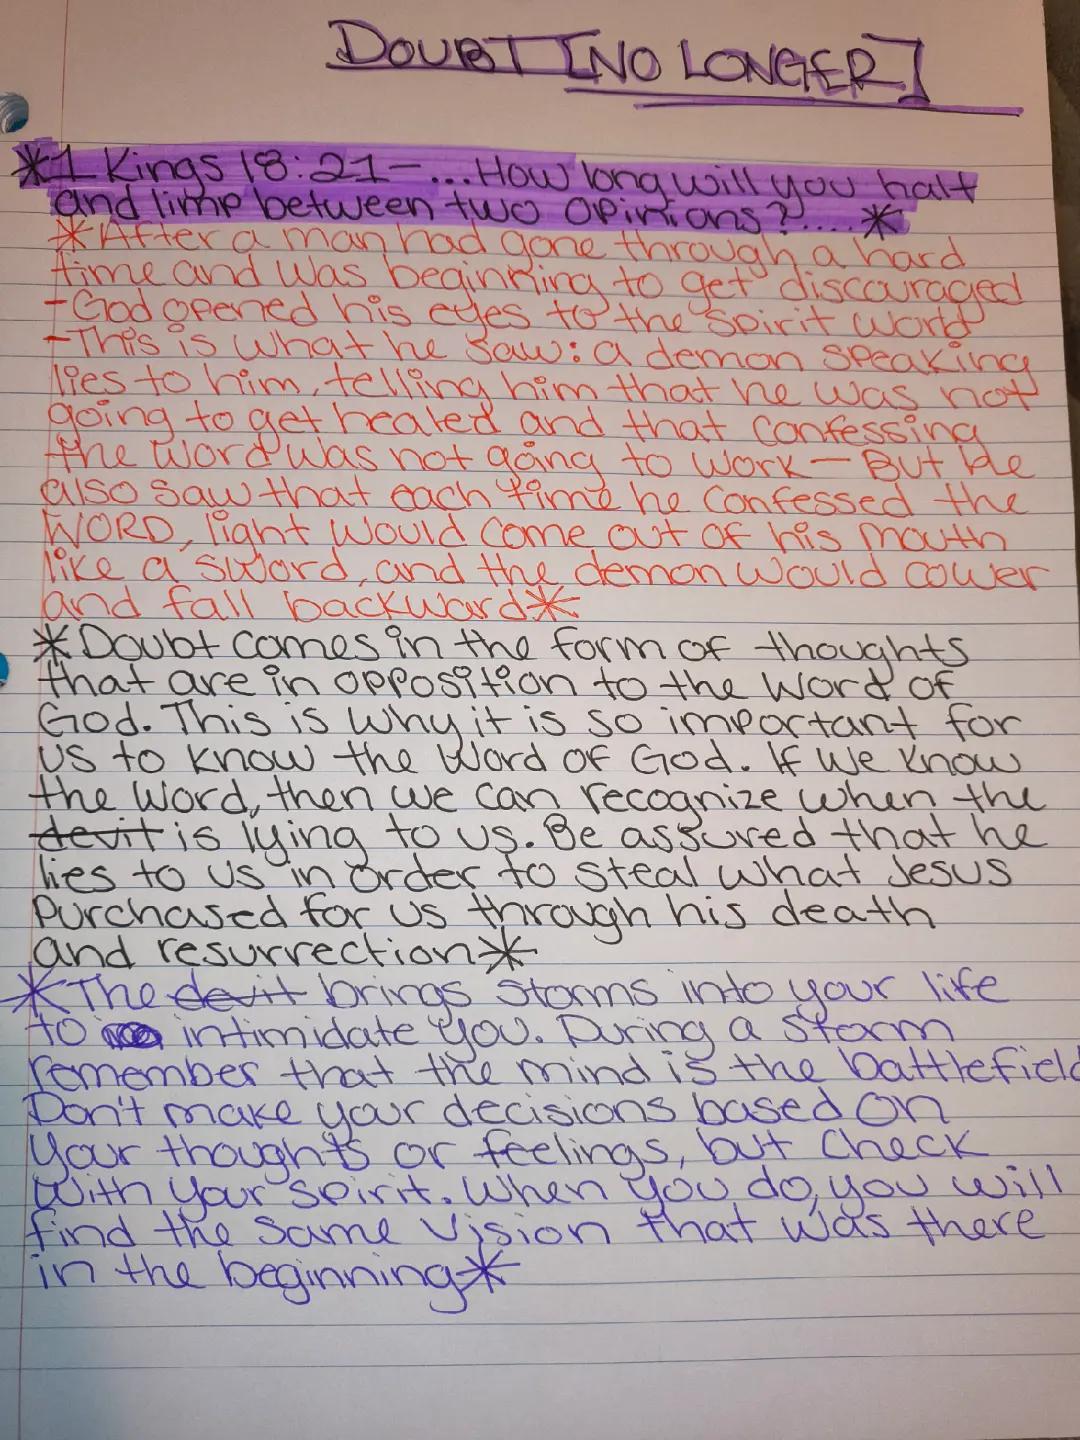 DOUBT [NO LONGER]
*1 Kings 18:21-...How long will you halt
and limp between two opinions?....*
*After a man had gone through a hard
time and was beginning to get discouraged
-God opened his eyes to the spirit world
-This is what he saw: a demon speaking
lies to him, telling him that he was not
going to get healed and that confessing
the Word was not going to work-But he
also saw that each time he confessed the
WORD, light would come out of his mouth
like a sword, and the demon would cower
and fall backward*
*Doubt comes in the form of thoughts
that are in opposition to the Word of
God. This is why it is so important for
us to know the Word of God. If we know
the Word, then we can recognize when the
devil is lying to us. Be assured that he
lies to us in order to steal what Jesus
purchased for us through his death
and resurrection*
*The devil brings storms into your life
to intimidate you. During a storm
remember that the mind is the battlefield
Don't make your decisions based on
your thoughts or feelings, but check
with your spirit. When you do, you will
find the same vision that was there
in the beginning*